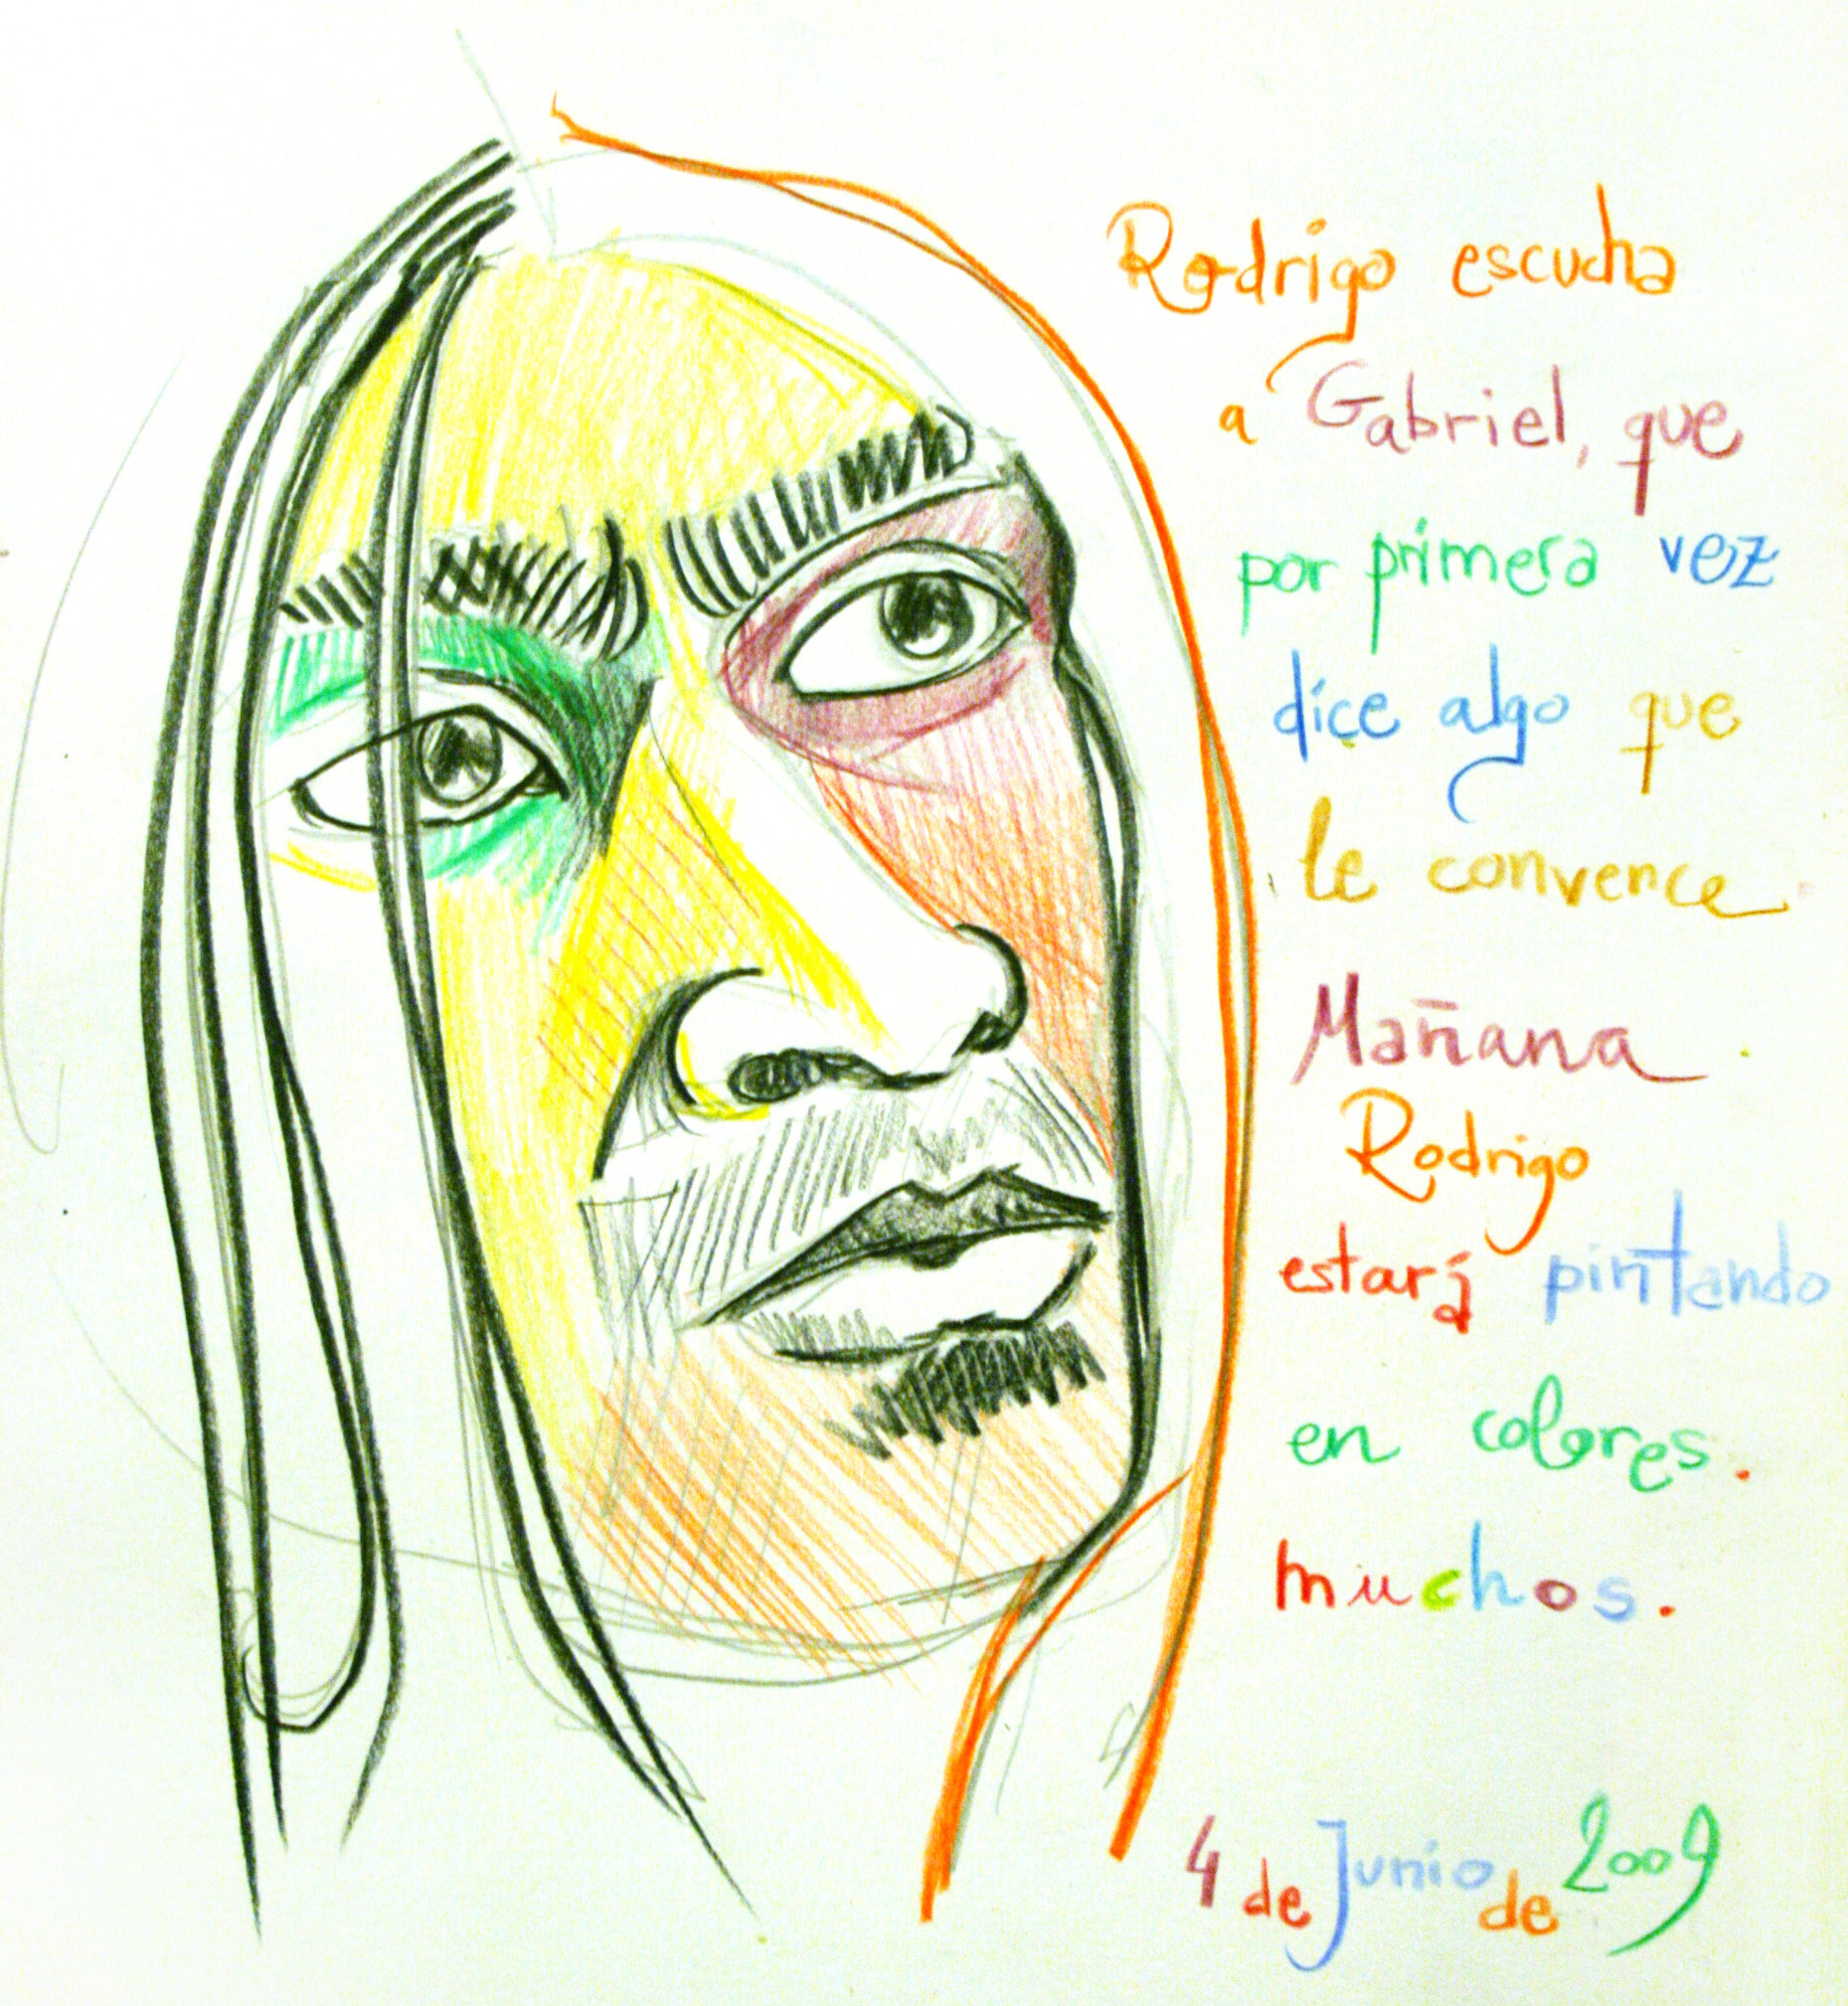 Rodrigo escucha
a Gabriel, que
por primera vez
dice algo que
le convence
Mañana
Rodrigo
estará pintando
en colores.
muchos.
4 de Junio de 2009